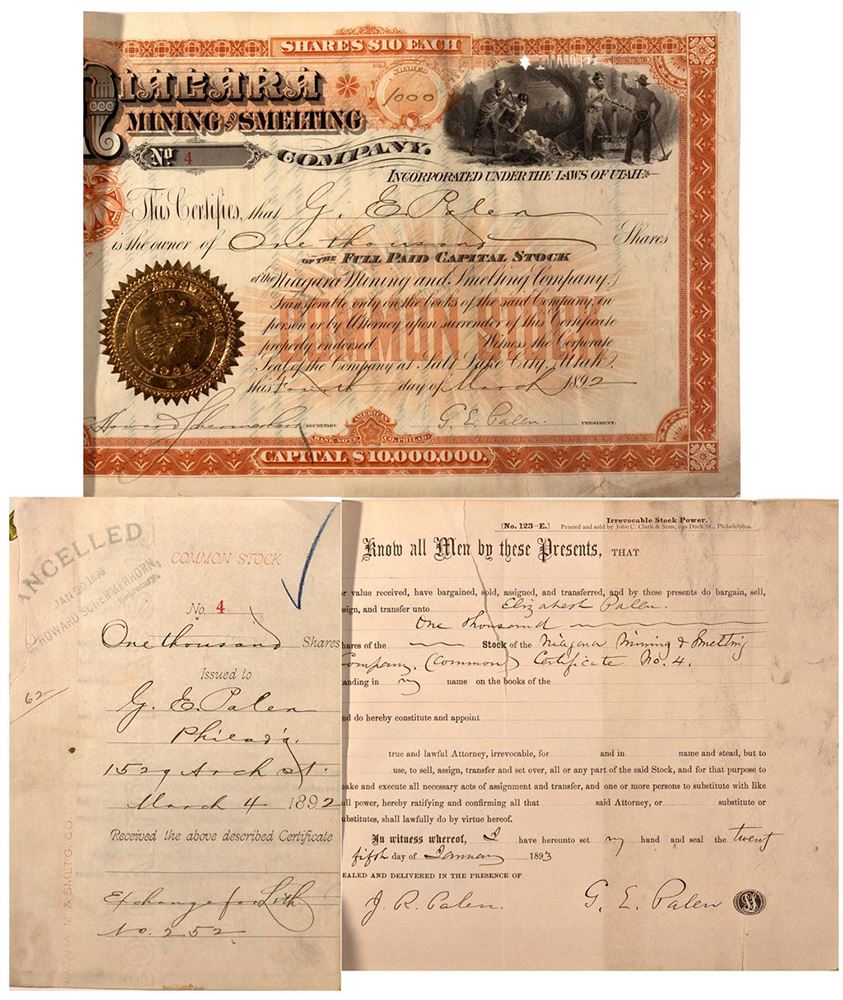 SHARES $10 EACH
NIAGARA
MINING AND SMELTING
COMPANY.
SHARES
1000
No 4
INCORPORATED UNDER THE LAWS OF UTAH
This Certifies, that G. E. Palen
is the owner of One thousand Shares
OF THE FULL PAID CAPITAL STOCK
of the Niagara Mining and Smelting Company,
Transferable only on the books of the said Company, in
person or by Attorney upon surrender of this Certificate
properly endorsed. Witness the Corporate
Seal of the Company at Salt Lake City, Utah,
this Fourth day of March 1892
COMMON STOCK
Howard Schermerhorn SECRETARY.
G. E. Palen PRESIDENT.
AMERICAN
BANK NOTE CO. PHILAD.
CAPITAL $10,000,000.
ANCELLED
JAN 30 1893
HOWARD SCHERMERHORN,
Secretary
COMMON STOCK
No. 4
One thousand Shares
Issued to
G. E. Palen
Philad'a,
1529 Arch St.
March 4 1892
Received the above described Certificate
Exchange for Lith
No. 252
62
& SMLTG. CO
[No. 123-E.]
Irrevocable Stock Power.
Printed and sold by John C. Clark & Sons, 230 Dock St., Philadelphia.
Know all Men by these Presents, THAT
r value received, have bargained, sold, assigned, and transferred, and by these presents do bargain, sell,
sign, and transfer unto Elizabeth Palen.
One Thousand
hares of the Stock of the Niagara Mining & Smelting
ompany. (Common) Certificate No. 4.
anding in my name on the books of the
nd do hereby constitute and appoint
true and lawful Attorney, irrevocable, for and in name and stead, but to
use, to sell, assign, transfer and set over, all or any part of the said Stock, and for that purpose to
ake and execute all necessary acts of assignment and transfer, and one or more persons to substitute with like
ull power, hereby ratifying and confirming all that said Attorney, or substitute or
ubstitutes, shall lawfully do by virtue hereof.
In witness whereof, I have hereunto set my hand and seal the twent
fifth day of January 1893
EALED AND DELIVERED IN THE PRESENCE OF
J. R. Palen.
G. E. Palen